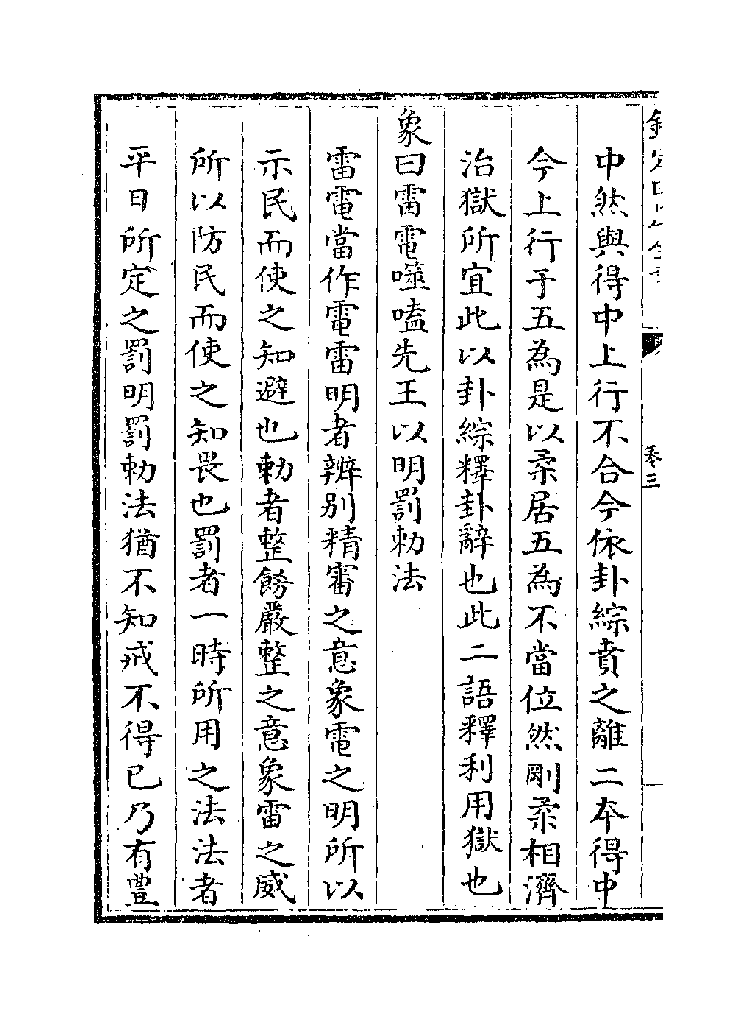 中然與得中上行不合今依卦綜賁之離二本得中
今上行于五為是以柔居五為不當位然剛柔相濟
治獄所宜此以卦綜釋卦辭也此二語釋利用獄也
象曰雷電噬嗑先王以明罰勅法
雷電當作電雷明者辨别精審之意象電之明所以
示民而使之知避也勅者整飭嚴整之意象雷之威
所以防民而使之知畏也罰者一時所用之法法者
平日所定之罰明罰勅法猶不知戒不得已乃有豊
卷三